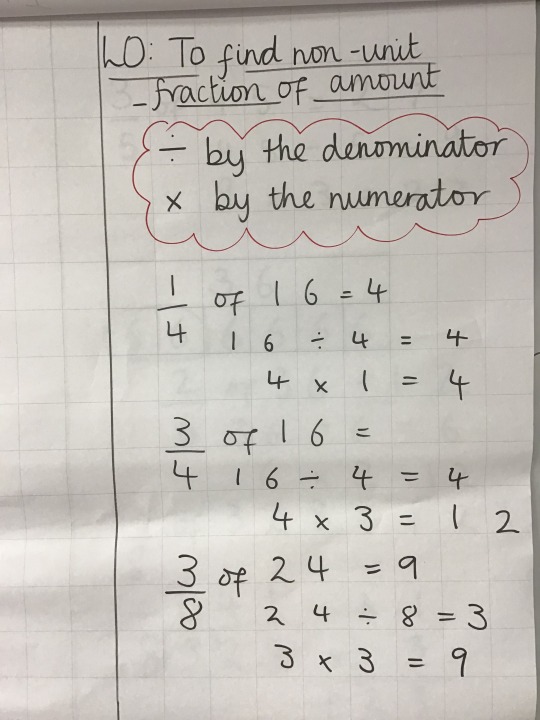 LO: To find non-unit
fraction of amount
÷ by the denominator
x by the numerator
1/4 of 16 = 4
16 ÷ 4 = 4
4 x 1 = 4
3/4 of 16 =
16 ÷ 4 = 4
4 x 3 = 12
3/8 of 24 = 9
24 ÷ 8 = 3
3 x 3 = 9